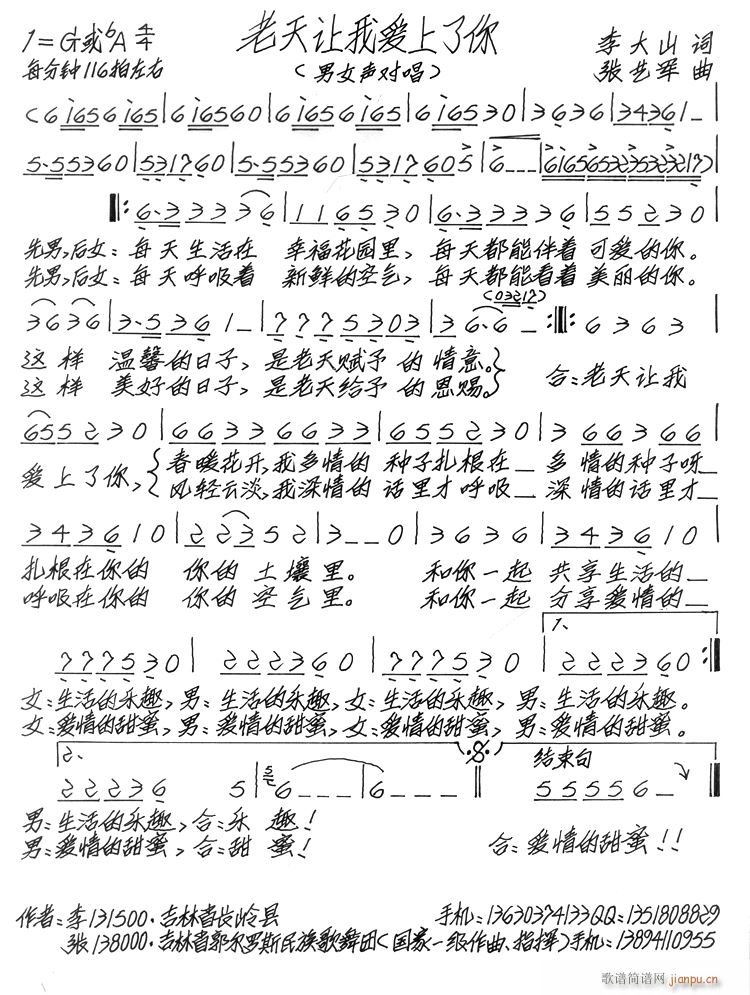 老天让我爱上了你
1=G或bA 4/4
每分钟116拍左右
(男女声对唱)
李大山 词
张艺军 曲
(6 i656 i65|6 i65060|6 i656 i65|6 i65030|3636|34361_|
5·55360|531760|5·55360|5317605|6___|6165653235323217)|
‖:6·333336|116530|6·333336|55230|
先男,后女:每天生活在 幸福花园里,每天都能伴着可爱的你。
先男,后女:每天呼吸着 新鲜的空气,每天都能看着美丽的你。
(03217)
3636|3·5361_|7775303|36·6_:‖:6363|
这样 温馨的日子,是老天赋予的情意。
这样 美好的日子,是老天给予的恩赐。
合:老天让我
655230|66336633|655230|3663366|
爱上了你,
春暖花开,我多情的 种子扎根在_ 多情的种子呀_
风轻云淡,我深情的 话里才呼吸_ 深情的话里才_
343610|22352|3__0|3636|343610|
扎根在你的 你的土壤里。 和你一起 共享生活的_
呼吸在你的 你的空气里。 和你一起 分享爱情的_
1、
777530|222360|777530|222360:‖
女:生活的乐趣,男:生活的乐趣,女:生活的乐趣,男:生活的乐趣。
女:爱情的甜蜜,男:爱情的甜蜜,女:爱情的甜蜜,男:爱情的甜蜜。
2、
结束句
22236 5|6___|6___‖55556_‖
男:生活的乐趣,合:乐 趣!
男:爱情的甜蜜,合:甜 蜜!
合:爱情的甜蜜!!
作者:李131500·吉林省长岭县 手机:13630374133QQ:1351808829
张138000·吉林省郭尔罗斯民族歌舞团(国家一级作曲、指挥)手机:13894110955
歌谱简谱网
jianpu.cn